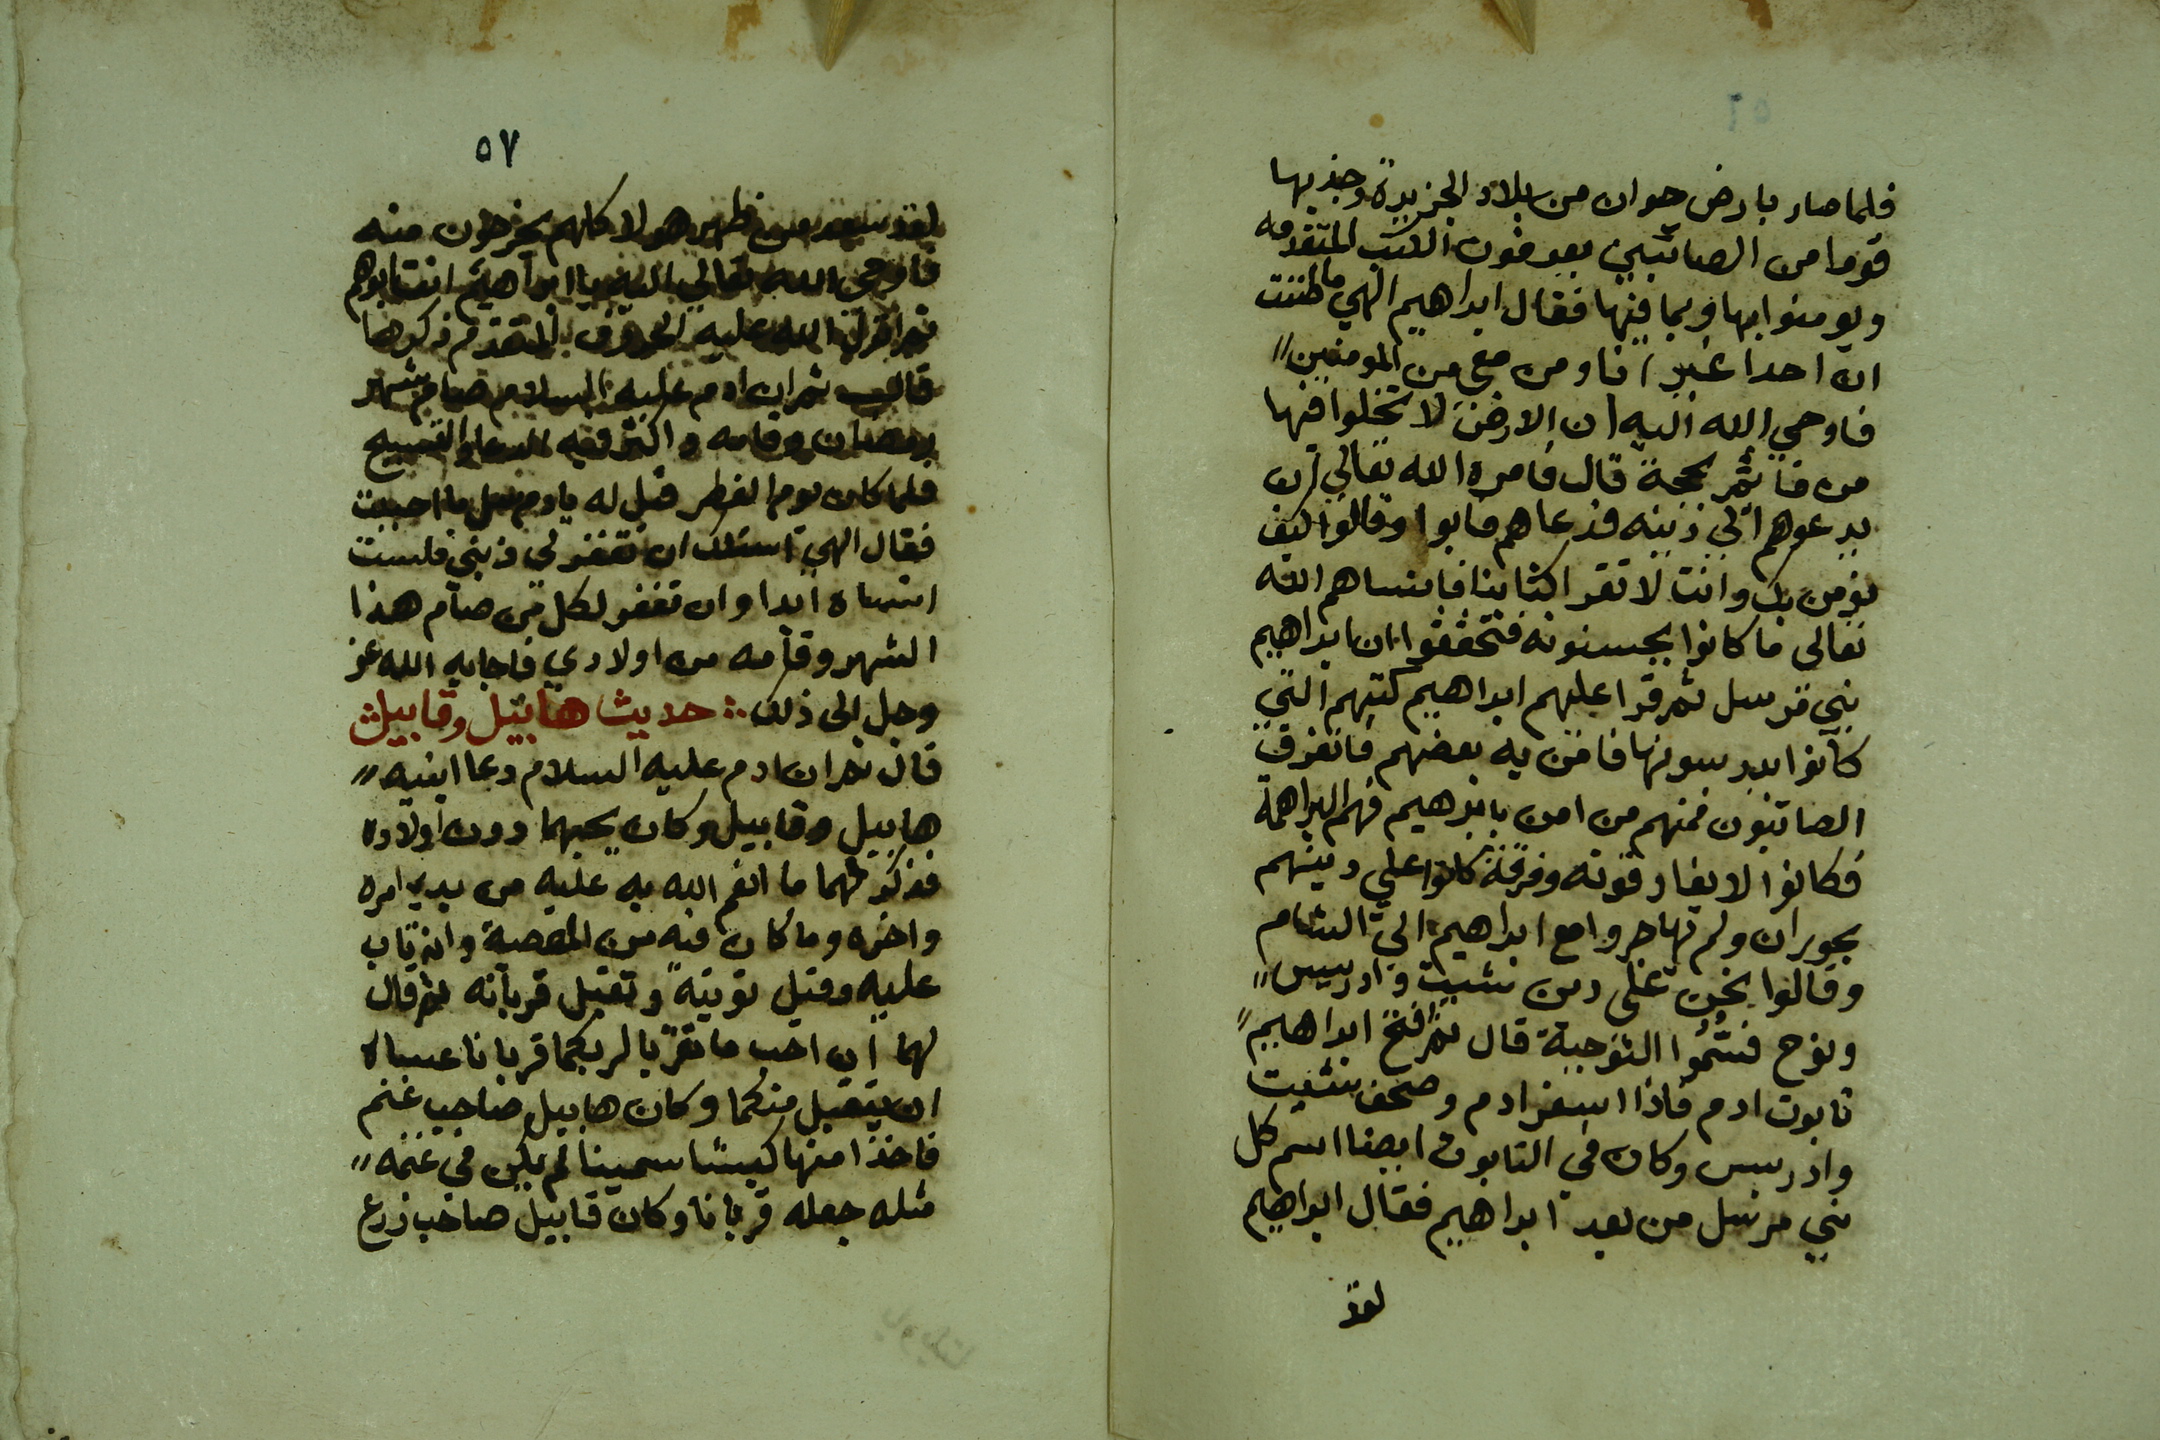 ٥٦
فلما صار بارض حران من بلاد الجزيرة وجد بها
قوما من الصائبين يعرفون الكتب المتقدمه
ويومنوا بها وبما فيها فقال ابراهيم الهي ما ظننت
ان احدا غيرا نا ومن معي من المومنين
فاوحي الله اليه ان الارض لا تخلوا فيها
من قائم بحجة قال فامره الله تعالي ان
يدعوهم الي دينه فدعاهم فابوا وقالوا كيف
نومن بك وانت لا تقرا كتابنا فانساهم الله
تعالي ما كانوا يحسنونه فتحققوا ان ابراهيم
نبي مرسل ثم قرا عليهم ابراهيم كتبهم التي
كانوا يدرسونها فامن به بعضهم فانفرق
الصائبون فمنهم من امن بابرهيم فهم البراهمة
فكانوا لا يفارقونه وفرقة كانوا علي دينهم
بحوران ولم تهاجروا مع ابراهيم الي الشام
وقالوا نحن علي دين شيت وادريس
ونوح فسُمُّوا النوحية قال ثم فتح ابراهيم
تابوت ادم فاذا اسفر ادم وصحف شيت
وادريس وكان في التابوت ايضا اسم كل
نبي مرسل من بعد ابراهيم فقال ابراهيم
لقد
٥٧
لقد سعد من ظهر هولا كلهم يخرجون منه
فاوحي الله تعالي اليه يا ابراهيم انت ابوهم
ثم انزل الله عليه الحروف المتقدم ذكرها
قال ثم ان ادم عليه السلام صام شهر
رمضان وقامه واكثر فيه الدعا والتسبيح
فلما كان يوم الفطر قيل له يادم سل ما احببت
فقال الهي اسئلك ان تغفر لي ذنبي فلست
انساه ابدا وان تغفر لكل من صام هذا
الشهر وقامه من اولادي فاجابه الله عز
وجل الى ذلك حديث هابيل وقابيل
قال ثم ان ادم عليه السلام دعا ابنيه
هابيل وقابيل وكان يحبهما دون اولاده
فذكر لهما ما انعم الله به عليه من بدي امره
واخره وما كان فيه من المعصية وانه تاب
عليه وقبل توبتة وتقبل قربانه ثم قال
لهما ان احب ما تقربا لربكما قربانا عساه
ان يتقبل منكما وكان هابيل صاحب غنم
فاخذ امنها كبشا سمينا لم يكن في غنمه
مثله جعله قربانا وكان قابيل صاحب زرع